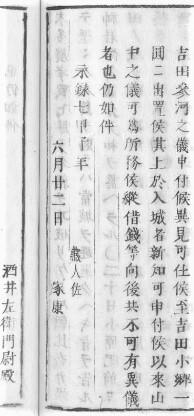 吉田参河之儀申付候異見可仕候至吉田小郷一
圓ニ出置候其上於入城者新知可申付候以来山
中之儀可為所務候縦借錢等向後共不可有異儀
者也仍如件
永禄七甲子年
六月廿二日
蔵人佐
家康
酒井左衛門尉殿